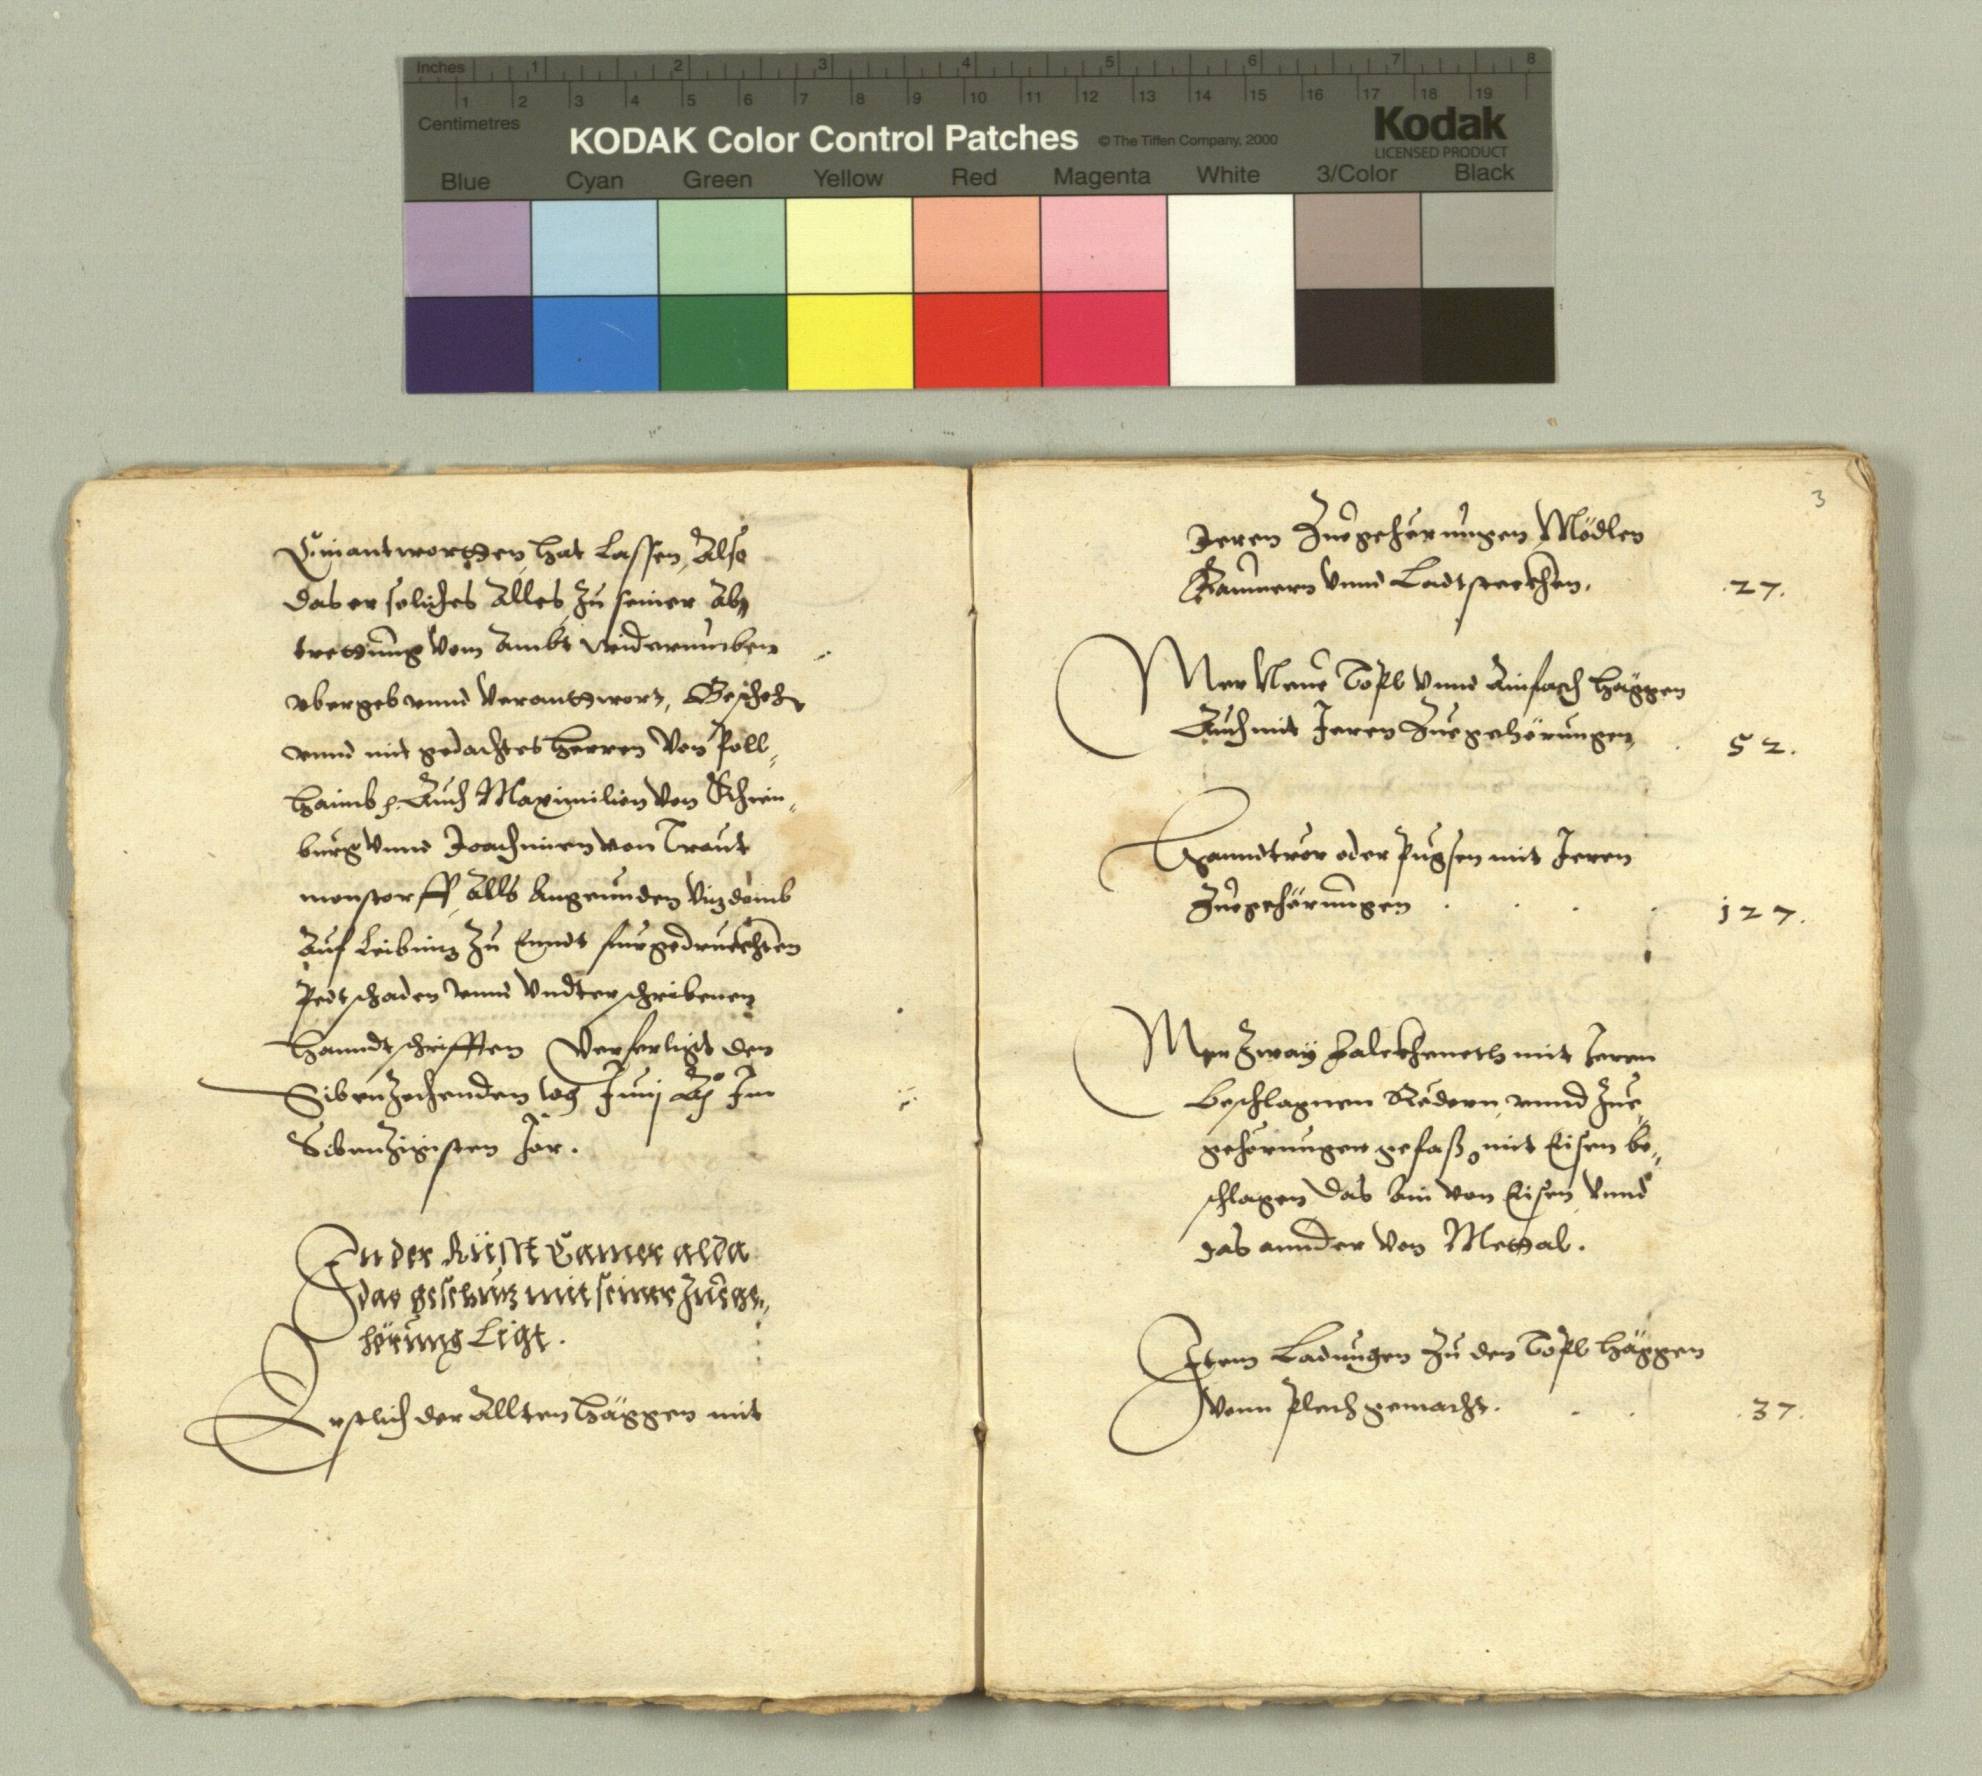 Inches 1 2 3 4 5 6 7 8
1 2 3 4 5 6 7 8 9 10 11 12 13 14 15 16 17 18 19
Centimetres
KODAK Color Control Patches © The Tiffen Company, 2000
Kodak
LICENSED PRODUCT
Blue Cyan Green Yellow Red Magenta White 3/Color Black
Einantwortten hat lassen, Also
das er soliches Alles zu seiner Ab,
trettung vom Ambt widerumben
vbergeb vnnd verantwort,
vnnd mit gedachtes herren von Poll,
haimbs. Auch Maximilien von
burg vnnd Joachimen von Traut
monstorff, Alls Vizdomb
Auf Leibniz zu Ennds furgedruckhten
Petschaden vnnd vndterschribenen
Hanndtschrifften Verfertigt den
Sibenzehenden tag Junij Im
Sibenzigisten Jar.
In der Rüsst Camer alda
das geschutz mit seiner Zuege,
hörung Ligt.
Erstlich der Allten häggen mit
3
Jeren Zuegehörungen Mödlen
Raumern vnnd Ladtsteckhen. 27.
Mer Neue Topl vnnd Ainfach häggen
Auch mit Jeren Zuegehörungen 52.
Hanndtror oder Pugsen mit Jeren
Zuegehörungen 127.
Mer Zway Falckheneth mit Jeren
beschlagnen Redern vnnd Zue,
gehörungen gefast mit Eisen be,
schlagen das ain von Eisen vnnd
das annder von Mettal.
Item Ladungen zu den Topl häggen
vonn Plech gemacht. 37.